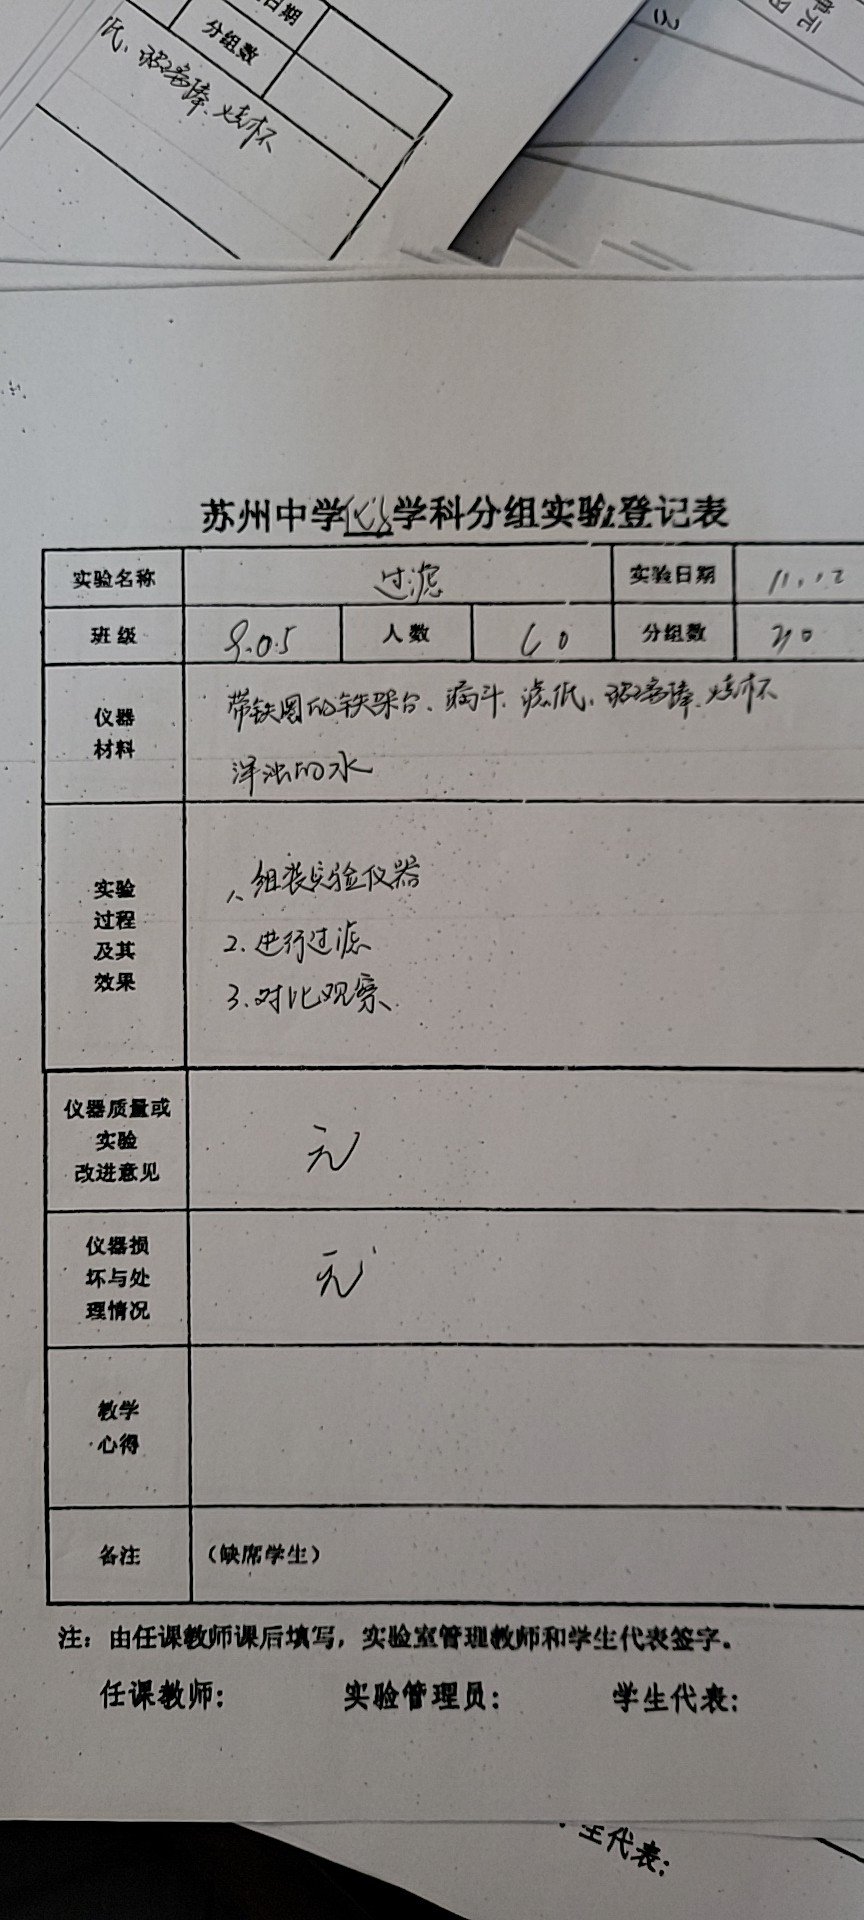 日期
分组数
纸、玻璃棒、烧杯
苏州中学化学学科分组实验登记表
实验名称 过滤 实验日期 11.12
班级 9.05 人数 60 分组数 30
仪器材料 带铁圈的铁架台、漏斗、滤纸、玻璃棒、烧杯
浑浊的水
实验过程及其效果 1、组装实验仪器
2、进行过滤
3、对比观察、
仪器质量或实验改进意见 无
仪器损坏与处理情况 无
教学心得
备注 (缺席学生)
注：由任课教师课后填写，实验室管理教师和学生代表签字。
任课教师： 实验管理员： 学生代表：
生代表：